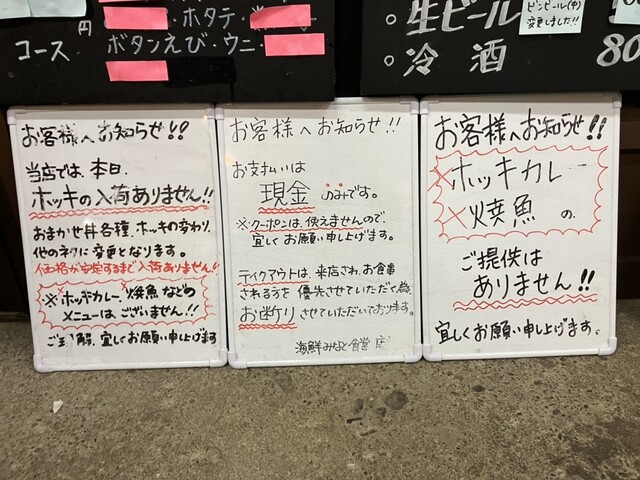 ホタテ
コース 円
ボタンえび・ウニ
生ビール
ビンビール(中)
変更しました!!
冷酒 80
お客様へお知らせ!!
当店では、本日、
ホッキの入荷ありません!!
おまかせ丼各種、ホッキの変わり、
他のネタに変更となります。
価格が安定するまで入荷ありません!!
※ホッキカレー、焼魚などの
メニューは、ございません!!
ご理解、宜しくお願い申し上げます
お客様へお知らせ!!
お支払いは
現金のみです。
※クーポンは、使えませんので、
宜しくお願い申し上げます。
テイクアウトは、来店され、お食事
される方を優先させていただく為、
お断りさせていただいております。
海鮮みなと食堂 店
お客様へお知らせ!!
×ホッキカレー
×焼魚 の
ご提供は
ありません!!
宜しくお願い申し上げます。